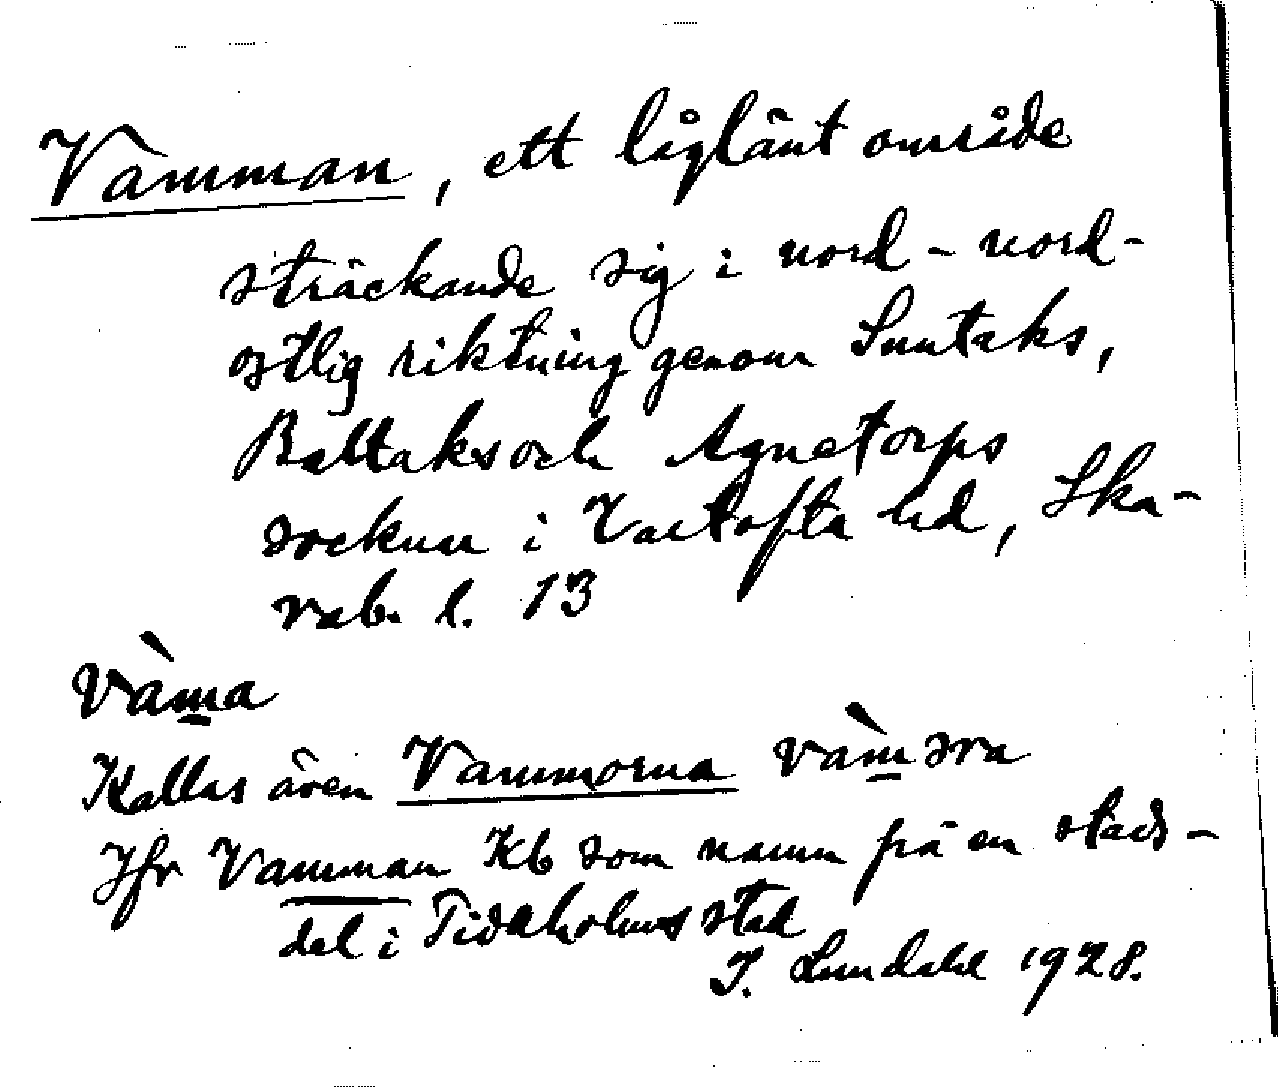 Vamman, ett låglänt område
sträckande sig i nord-nord-
ostlig riktning genom Suntaks,
Baltaks och Agnetorps
socknar i Vartofta hd, Ska-
rab. l. 13
vàma
Kallas även Vammorna vàmơra
Jfr Vamman Kb som namn på en stads-
del i Tidaholms stad
I. Lundahl 1928.